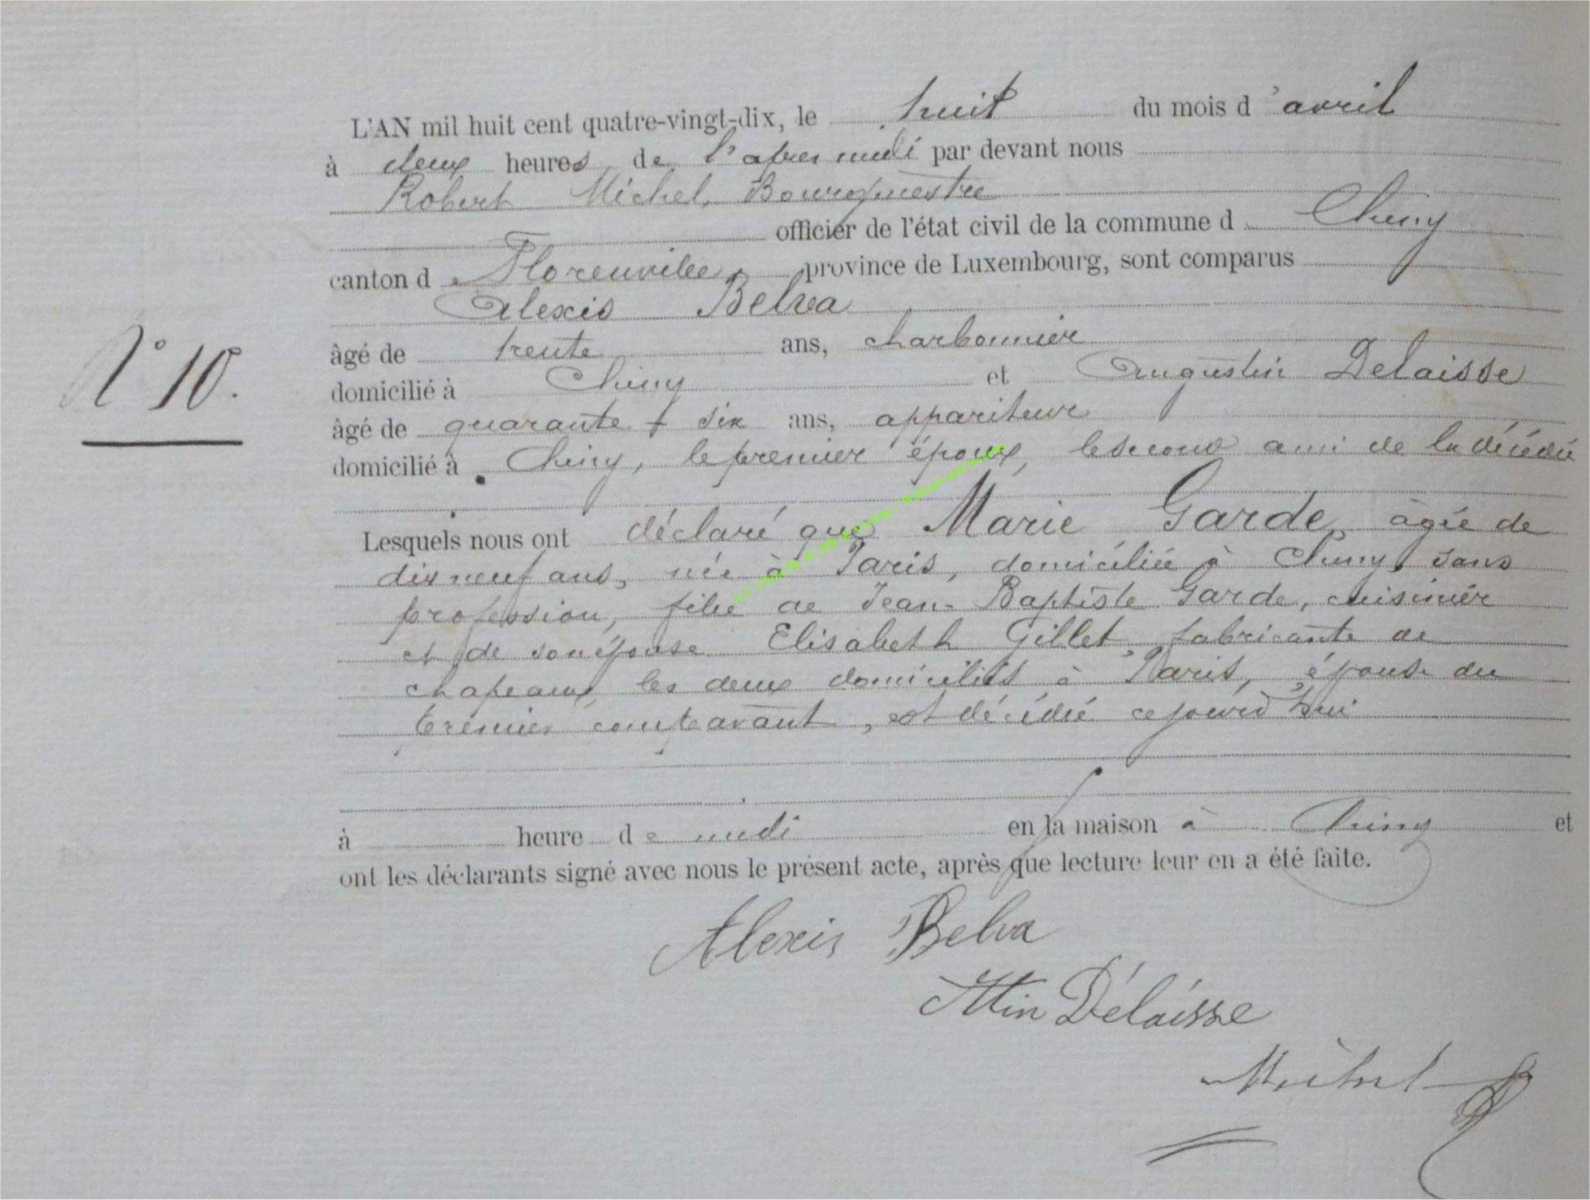 L'AN mil huit cent quatre-vingt-dix, le huit du mois d'avril
à deux heures de l'après midi par devant nous
Robert Michel, Bourgmestre
officier de l'état civil de la commune d Chiny
canton d Florenville, province de Luxembourg, sont comparus
Alexis Belva
âgé de trente ans, charbonnier
domicilié à Chiny et Augustin Delaisse
N° 10.
âgé de quarante + six ans, appariteur
domicilié à Chiny, le premier époux, le second ami de la décédée
Lesquels nous ont déclaré que Marie Garde, âgée de
dix neuf ans, née à Paris, domiciliée à Chiny, sans
profession, fille de Jean-Baptiste Garde, cuisinier
et de son épouse Elisabeth Gillet, fabricante de
chapeaux, les deux domiciliés à Paris, épouse du
premier comparant, est décédée ce jourd'hui
à heure de midi en la maison à Chiny et
ont les déclarants signé avec nous le présent acte, après que lecture leur en a été faite.
Alexis Belva
Attin Délaisse
Michel